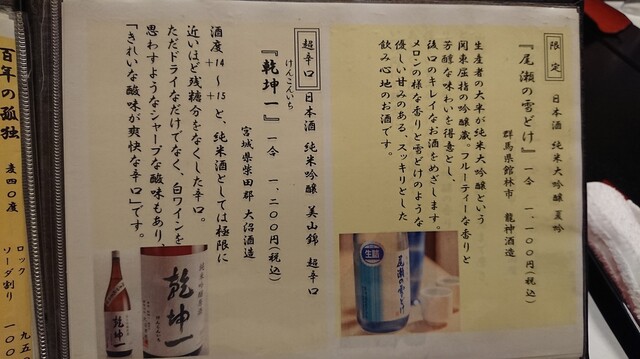 限定
日本酒 純米大吟醸 夏吟
『尾瀬の雪どけ』 一合 一、一〇〇円(税込)
群馬県館林市 龍神酒造
生産者の大半が純米大吟醸という
関東屈指の吟醸蔵。フルーティーな香りと
芳醇な味わいを得意とし、
後口のキレイなお酒をめざします。
メロンの様な香りと雪どけのような
優しい甘みのある、スッキリとした
飲み心地のお酒です。
尾瀬の雪どけ
超辛口
日本酒 純米吟醸 美山錦 超辛口
けんこんいち
『乾坤一』 一合 一、二〇〇円(税込)
宮城県柴田郡 大沼酒造
酒度+14~+15と、純米酒としては極限に
近いほど残糖分をなくした辛口。
ただドライなだけでなく、白ワインを
思わすようなシャープな酸味もあり、
「きれいな酸味が爽快な辛口」です。
純米吟醸原酒
乾坤一
乾坤一
百年の孤独
麦四〇度
ロック
ソーダ割り